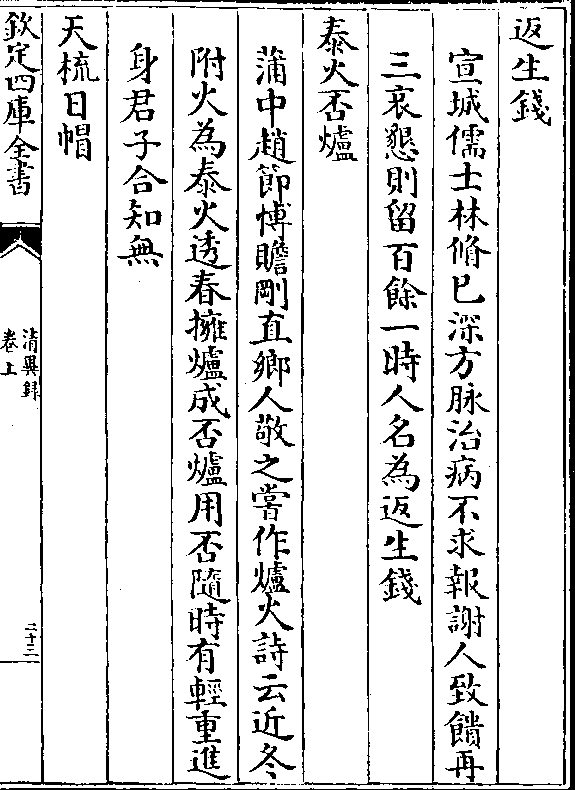 返生錢
宣城儒士林脩已深方脉治病不求報謝人致饋再
三哀懇則留百餘一時人名為返生錢
泰火否爐
蒲中趙節博贍剛直鄉人敬之嘗作爐火詩云近冬
附火為泰火透春擁爐成否爐用否隨時有輕重進
身君子合知無
天梳日帽
欽定四庫全書
清異錄
卷上
二十三